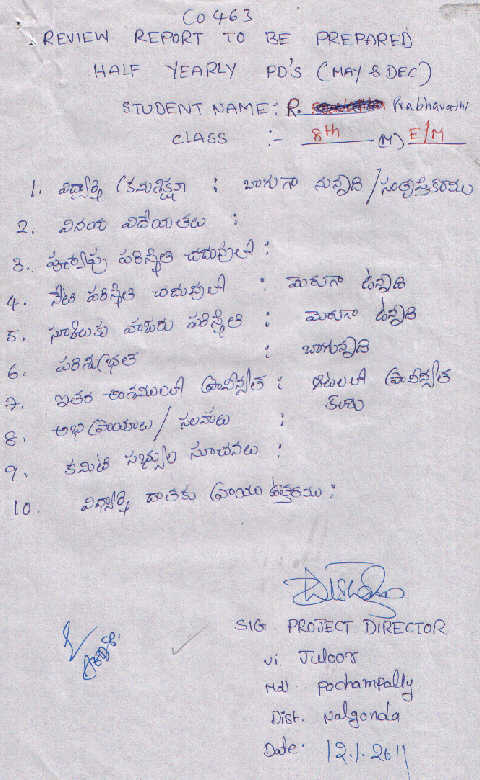 CO 463
REVIEW REPORT TO BE PREPARED
HALF YEARLY PD'S (MAY & DEC)
STUDENT NAME: R. Prabhavathi
CLASS :- 8th (M) E/M
1. విద్యార్థి క్రమశిక్షణ : బాగుగా నున్నది /
2. వినయ విధేయతలు :
3. పూర్వపు పరిస్థితి చదువులో :
4. నేటి పరిస్థితి చదువులో : మెరుగా ఉన్నది
5. స్కూలుకు హాజరు పరిస్థితి : మెరుగా ఉన్నది
6. పరిశుభ్రత : బాగున్నది
7. ఇతర అంశములలో ప్రావీణ్యత : ఆటలలో ప్రావీణ్యత
కలదు
8. అభిప్రాయాలు / సలహాలు :
9. కమిటి సభ్యుల సూచనలు :
10. విద్యార్థి దాతకు వ్రాయు ఉత్తరము :
SIG PROJECT DIRECTOR
Vi Juloor
Mdl. Pochampally
Dist. Nalgonda
Date. 12.1.2011